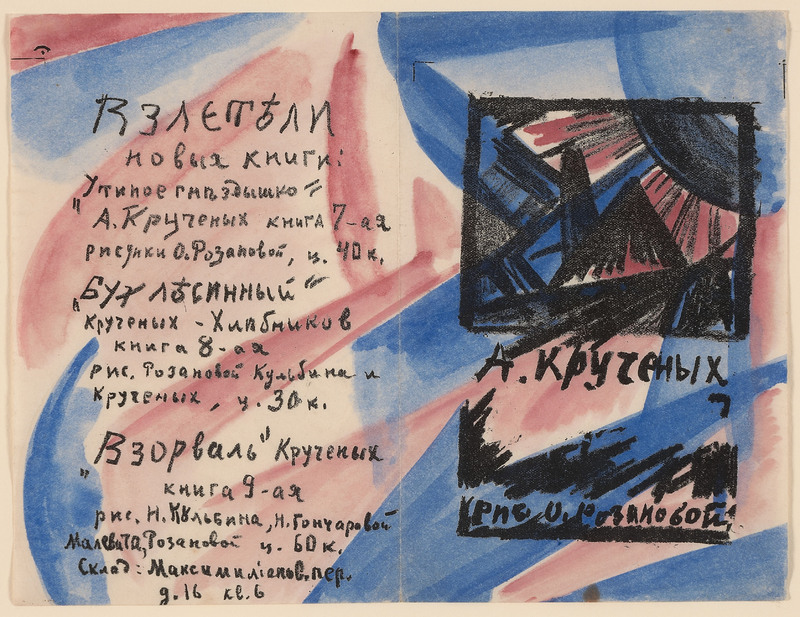 Взлетѣли
новыя книги:
Утиное гнѣздышко"
"А. Крученых книга 7-ая
рисунки О. Розановой, ц. 40 к.
"Бух лѣсинный"
крученых - Хлѣбников
книга 8-ая
рис. Розановой Кульбина и
Крученых, ц. 30 к.
Взорваль" Крученых
"
книга 9-ая
рис. Н. Кульбина, Н. Гончаровой
Малевича, Розановой ц. 60 к.
Склад: Максимиліанов. пер.
д. 16 кв. 6
А. Крученых
рис О. Розановой